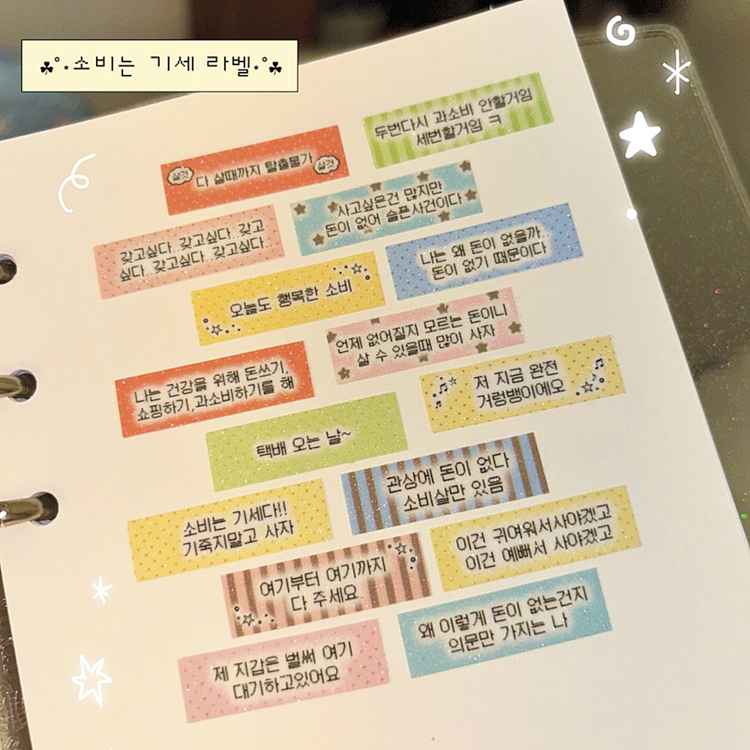 ☘︎°⋆소비는 기세 라벨⋆°☘︎
두번다시 과소비 안할거임
세번할거임 ㅋ
살것
다 살때까지 탈출불가
살것
사고싶은건 많지만
돈이 없어 슬픈사건이다
갖고싶다. 갖고싶다. 갖고
싶다. 갖고싶다. 갖고싶다.
나는 왜 돈이 없을까
돈이 없기 때문이다
오늘도 행복한 소비
언제 없어질지 모르는 돈이니
살 수 있을때 많이 사자
나는 건강을 위해 돈쓰기,
쇼핑하기, 과소비하기를 해
저 지금 완전
거렁뱅이에오
택배 오는 날~
관상에 돈이 없다
소비살만 있음
소비는 기세다!!
기죽지말고 사자
이건 귀여워서사야겠고
이건 예뻐서 사야겠고
여기부터 여기까지
다 주세요
왜 이렇게 돈이 없는건지
의문만 가지는 나
제 지갑은 벌써 여기
대기하고있어요